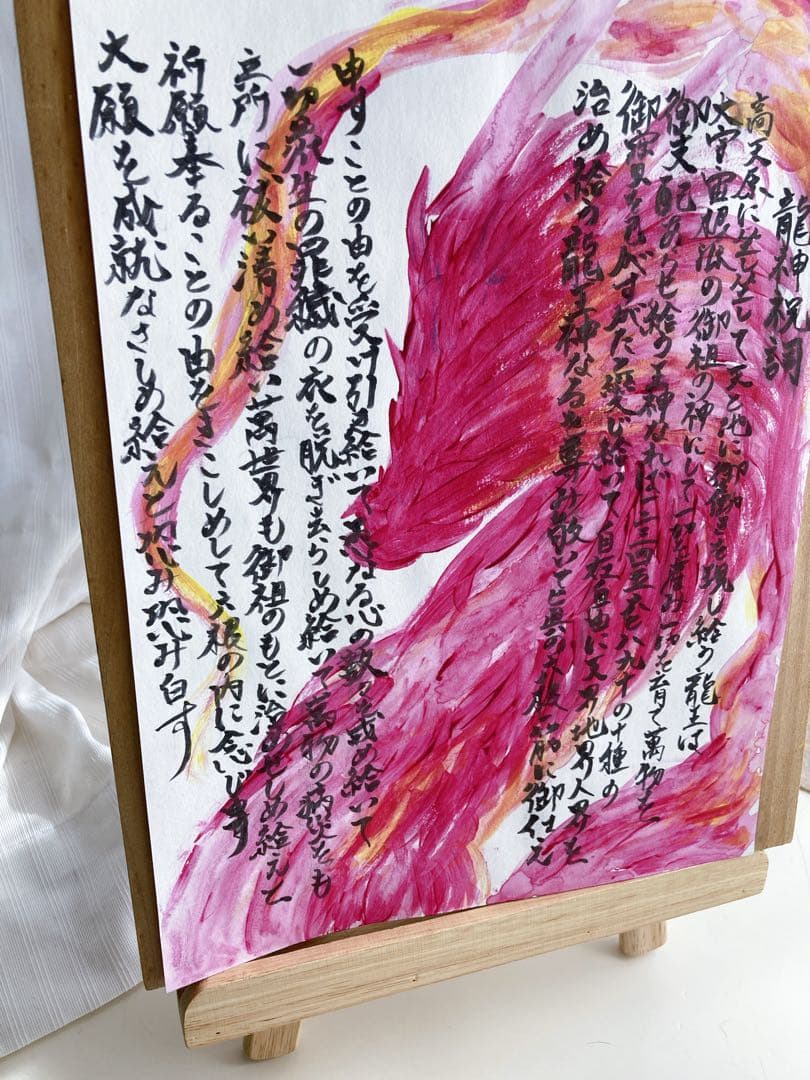 龍神祝詞
高天原に坐し坐して天と地に御働きを現し給う龍王は
大宇宙根源の御祖の神にして一切を産み一切を育て萬物を
御支配あらせ給う王神なれば一二三四五六七八九十の十種の
御寶を己がすがたと変じ給いて自在自由に天界地界人界を
治め給う龍王神なるを尊み敬いて眞の六根一筋に御仕え
申すことの由を受け引き給いて愚なる心の数々を戒め給いて
一切衆生の罪穢の衣を脱ぎ去らしめ給いて萬物の病災をも
立所に祓い清め給い萬世界も御祖のもとに治めせしめ給えと
祈願奉ることの由をきこしめして六根の内に念じ申す
大願を成就なさしめ給えと恐み恐み白す